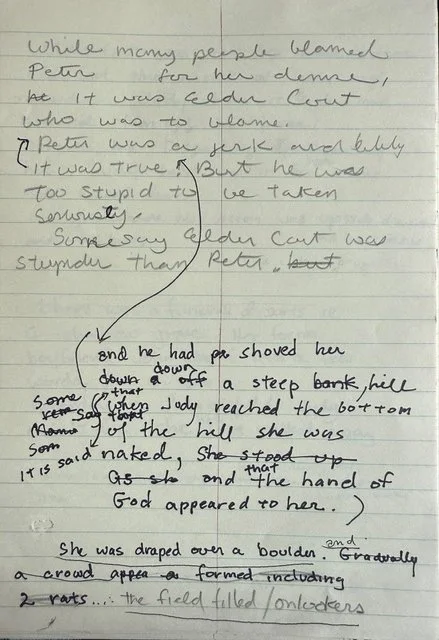 While many people blamed
Peter for her demise,
it was Elder Cout
who was to blame.
Peter was a jerk and bully
it was true. But he was
too stupid to be taken
seriously.
Some say Elder Cout was
stupider than Peter. but
and he had shoved her
down a down off a steep bank, hill
Some say that
that when Jody reached the bottom
of the hill she was
Som
it is said naked, She stood up
as she and that the hand of
God appeared to her. )
She was draped over a boulder. and Gradually
a crowd appea a formed including
2 rats.... the field filled / onlookers